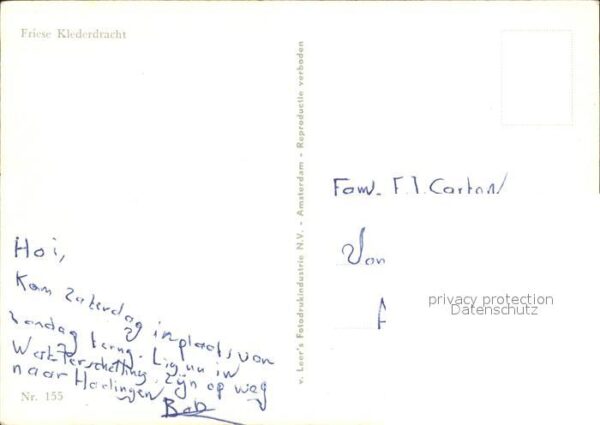 Friese Klederdracht
Hoi,
Kom zaterdag inplaats van
zondag terug. Lig nu in
West-Terschelling. Zijn op weg
naar Harlingen
Bob
Nr. 155
v. Leer's Fotodrukindustrie N.V. - Amsterdam - Reproductie verboden
Fam. F.J.
Von
A
privacy protection
Datenschutz